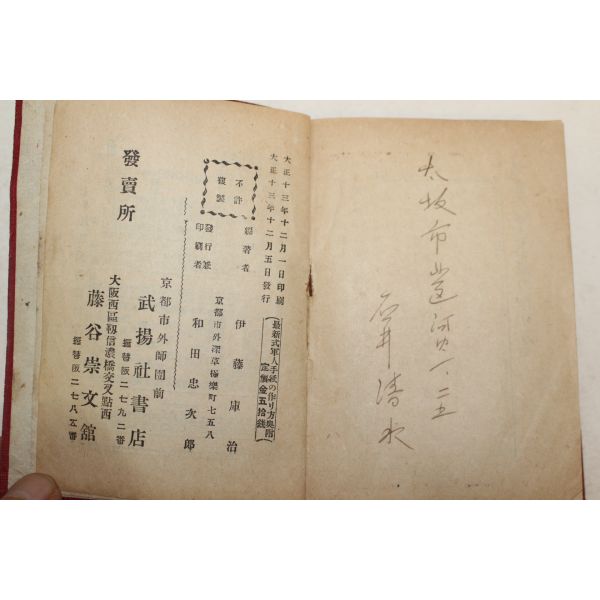 大坂市
石井清水
大正十三年十二月一日印刷
大正十三年十二月五日發行
最新式軍人手紙の作り方奥附
定價金五拾錢
不許
複製
編著者 伊藤庫治
京都市外深草極樂町七五八
發行兼
印刷者 和田忠次郎
發賣所
京都市外師團前
武揚社書店
振替阪二七九二番
大阪西區靱信濃橋交叉點西
藤谷崇文舘
振替阪二七八五番